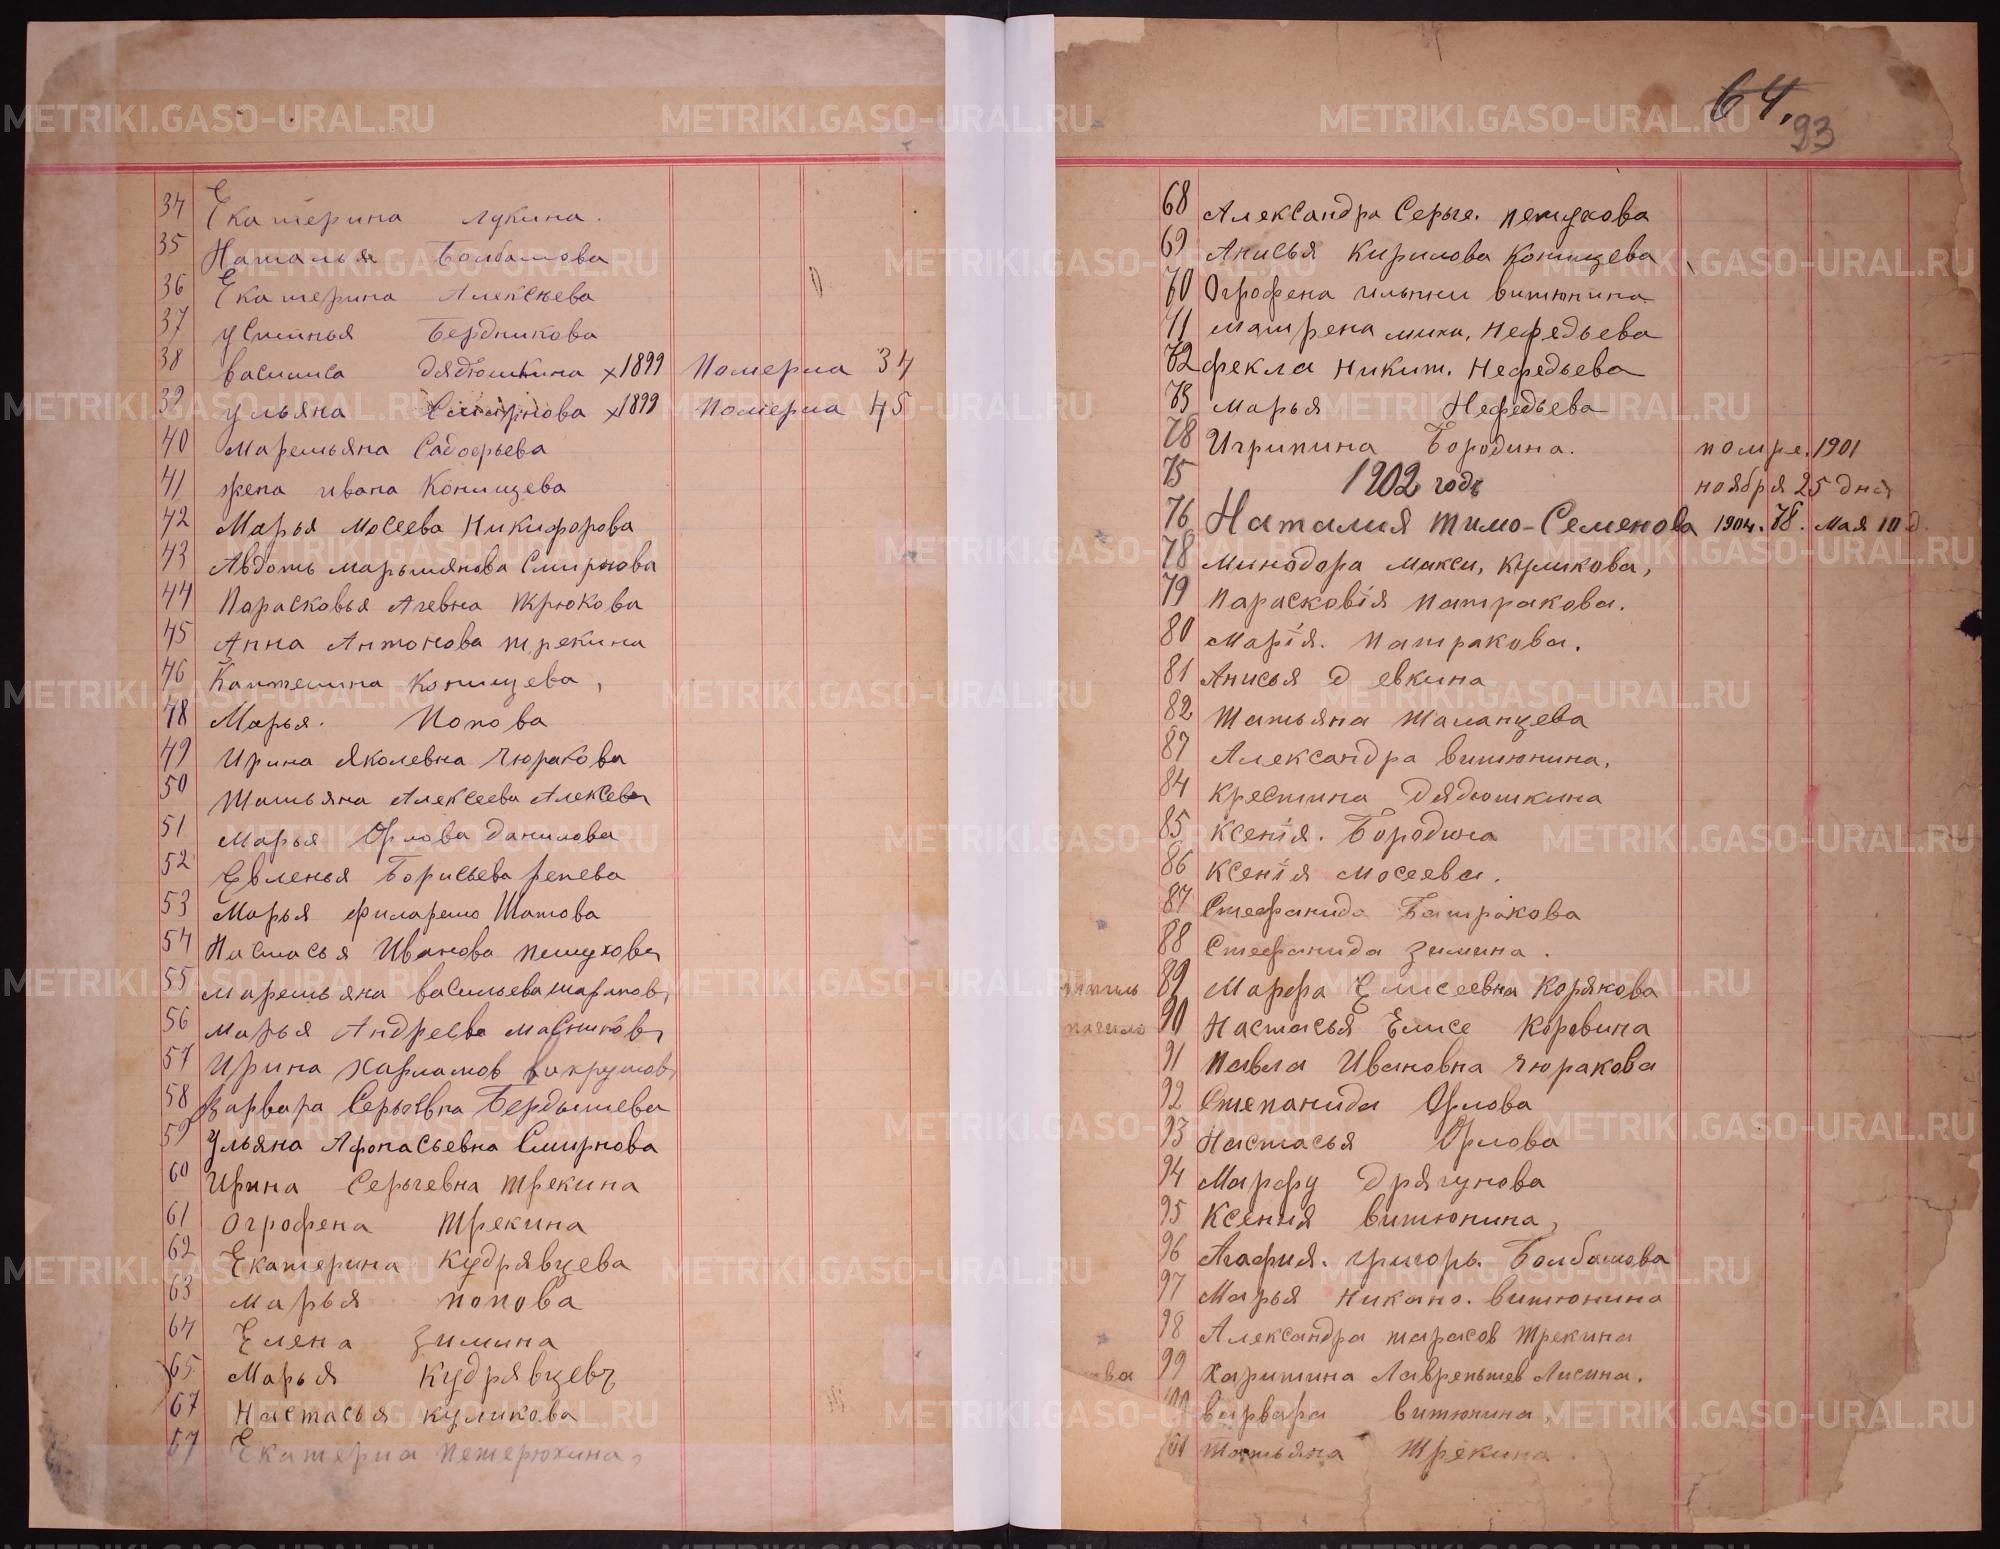 34 Екатерина Лукина.
35 Наталья Болбашова
36 Екатерина Алексеева
37 Устинья Бердникова
38 Василиса Дядюшкина ×1899 Померла 34
39 Ульяна Смирнова ×1899 Померла 45
40 Маремьяна
41 жена Ивана Конищева
42 Марья Мосеева Никифорова
43 Авдоть Смирнова
44 Парасковья Агевна Крюкова
45 Анна Антонова Трекина
46 Капителина Конищева,
48 Марья. Попова
49 Ирина Яколевна Чюракова
50 Татьяна Алексеева Алексева
51 Марья Орлова Данилова
52 Евленья Борисьева Репева
53 Марья Филарето Шатова
54 Настасья Иванова Петухова
55 Маремьяна Васильева
56 Марья Андреева
57 Ирина Харламов
58 Варвара Сергевна Бердышева
59 Ульяна Афонасьевна Смирнова
60 Ирина Серьгевна Трекина
61 Огрофена Трекина
62 Екатерина Кудрявцева
63 Марья Попова
64 Елена Зимина
65 Марья Кудрявцева
67 Настасья Куликова
57 Екатериа Петерюхина,
64. 93
68 Александра Серьге. Петухова
69 Анисья Кирилова Конищева
70 Огрофена Витюнина
71 Матрена Миха. Нефедьева
72 Фекла Никит. Нефедьева
73 Марья Нефедьева
78 Игрипина Бородина. помре. 1901
75 1902 годъ ноября 25 дня
76 Наталия Тимо-Семенова 1904. 78. Мая 10 д.
78 Минодора Макси, Куликова,
79 Парасковія Патракова.
80 Марія. Патракова.
81 Анисья Д евкина
82 Татьяна Таланцева
87 Александра Витюнина,
84 Крестина Дядюшкина
85 Ксенія. Бородина
86 Ксенія Мосеева.
87 Стефанида Батракова
88 Стефанида Зимина.
89 Марфа Елисеевна Корякова
90 Настасья Елисе Коровина
91 Павла Ивановна Чюракова
92 Степанида Орлова
93 Настасья Орлова
94 Марфу Дрягунова
95 Ксения Витюнина,
96 Агафия. Григорь. Болбашова
97 Марья Никано. Витюнина
98 Александра Тарасов Трекина
99 Харитина Лаврентьев Лисина.
100 Варвара Витюнина,
101 Татьяна Трекина.
METRIKI.GASO-URAL.RU